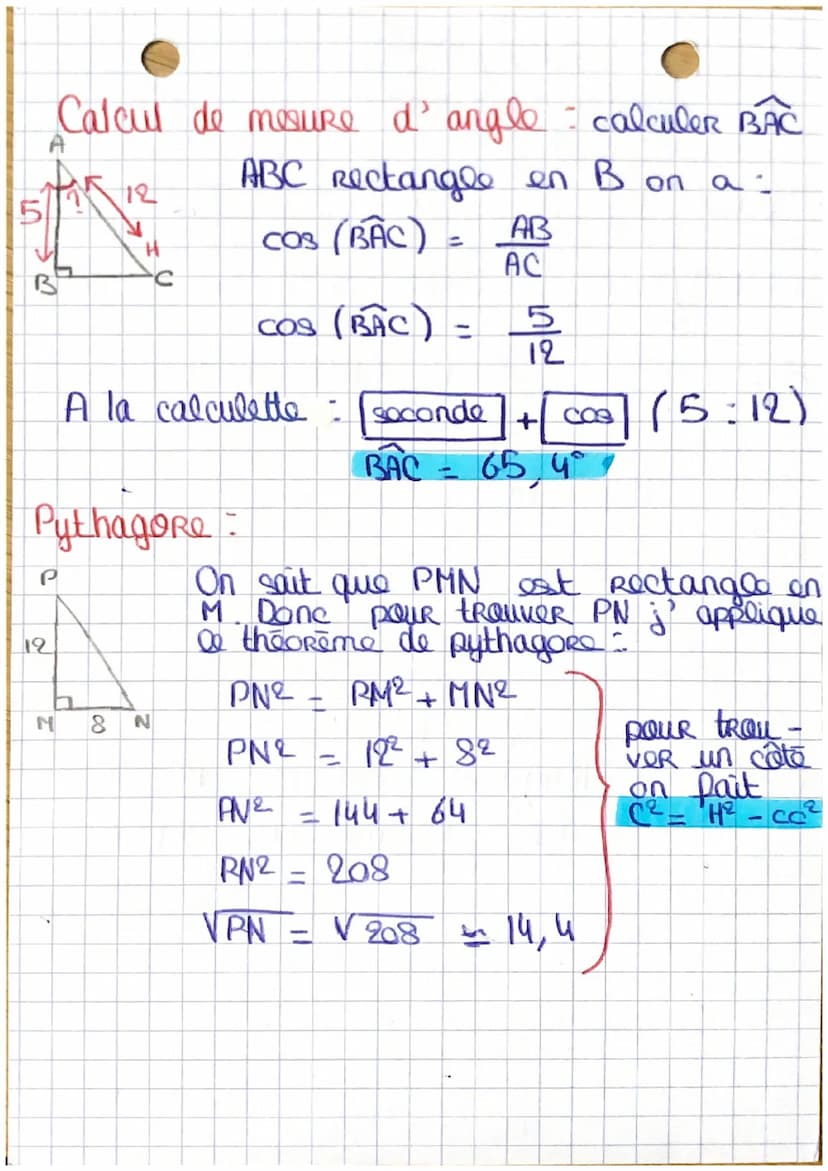 Calcul de mesure d'angle : calculer BÂC
A
ABC rectangle en B on a :
5
?
12
H
B
C
cos (BÂC) = AB
AC
cos (BÂC) = 5
12
A la calculette : seconde + cos (5 : 12)
BÂC = 65,4°
Pythagore :
P
12
M 8 N
On sait que PMN est rectangle en
M. Donc pour trouver PN j'applique
le théorème de pythagore :
PN² = PM² + MN²
PN² = 12² + 8²
PN² = 144 + 64
PN² = 208
√PN = √208 ≃ 14,4
pour trou-
ver un côté
on fait
C² = H² - CC²